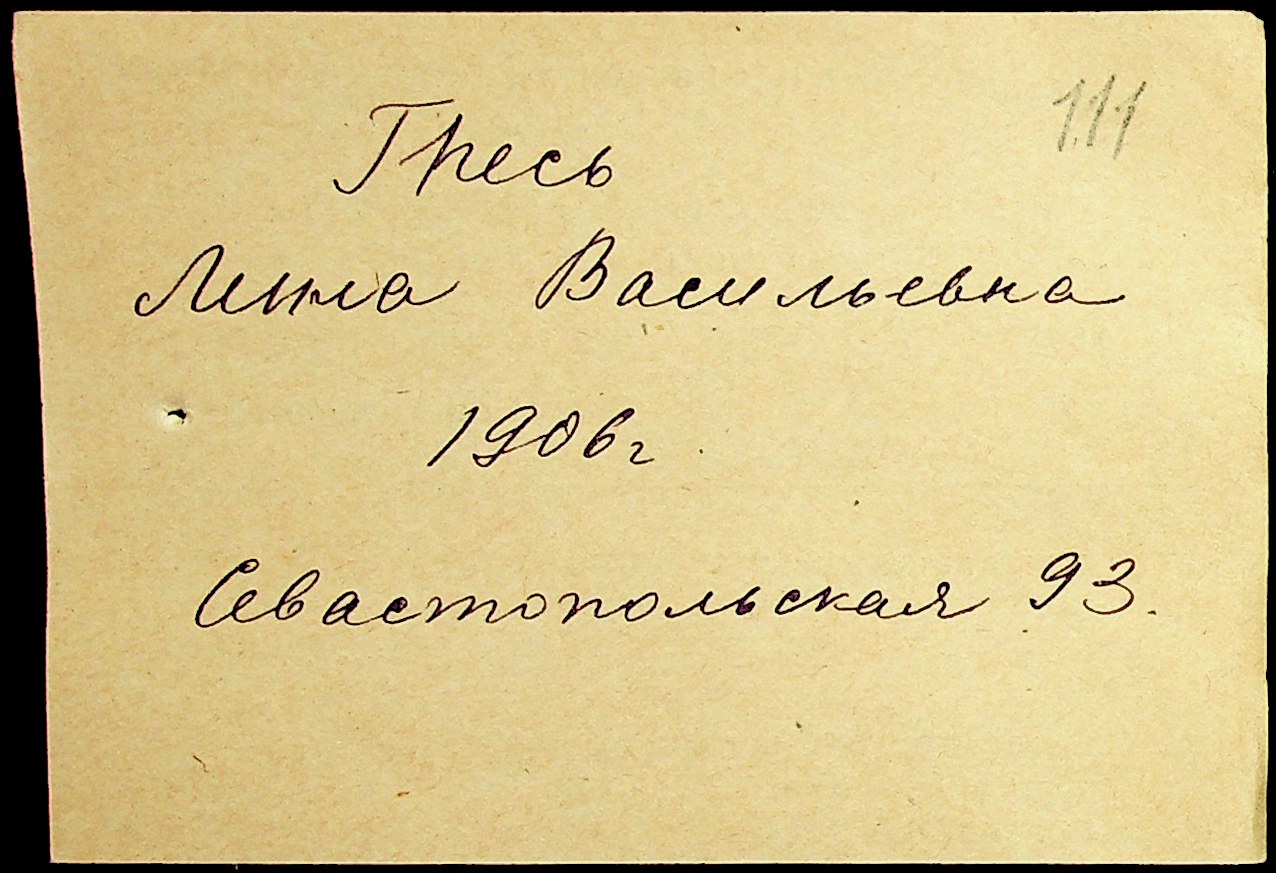 111
Гресь
Васильевна
1906г.
Севастопольская 93.